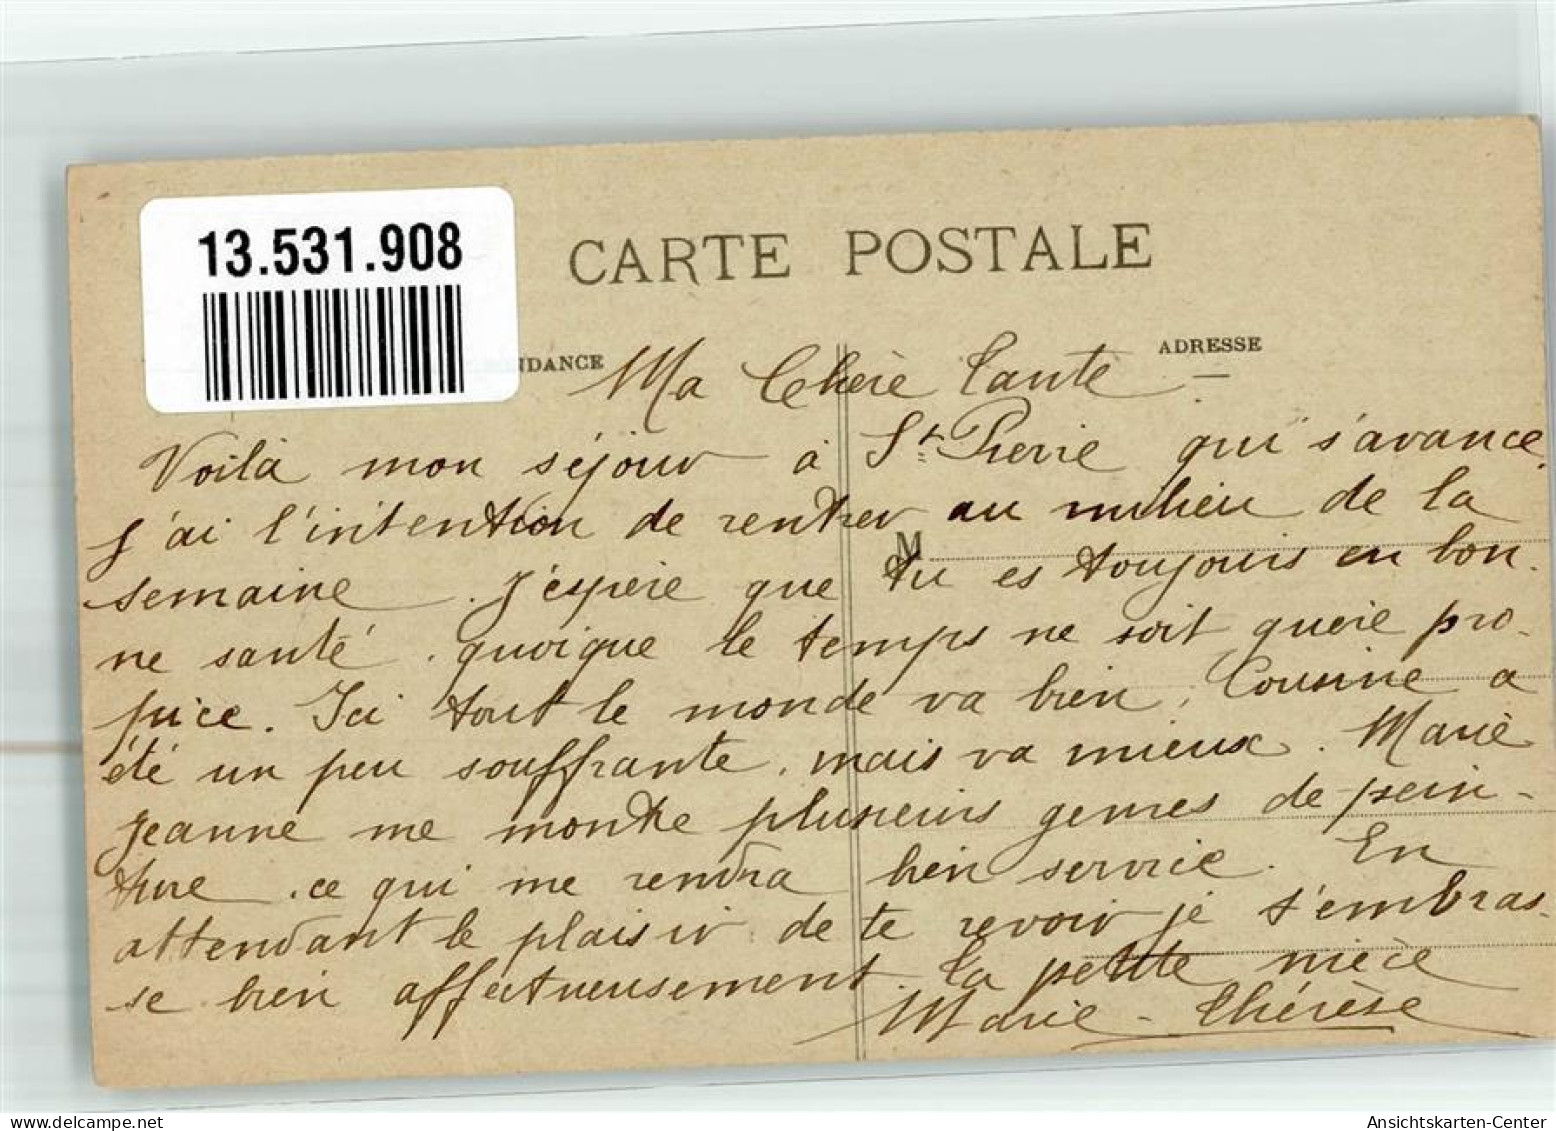 13.531.908
CARTE POSTALE
NDANCE
ADRESSE
Ma Chère Tante
Voilà mon séjour à St Pierre qui s'avance,
j'ai l'intention de rentrer au milieu de la
M
semaine. J'espère que tu es toujours en bon-
ne santé, quoique le temps ne soit guère pro-
pice. Ici tout le monde va bien, Cousine a
été un peu souffrante, mais va mieux. Marie
Jeanne me montre plusieurs genres de pein-
ture, ce qui me rendra bien service. En
attendant le plaisir de te revoir je t'embras-
se bien affectueusement. La petite nièce
Marie-Thérèse
delcampe.net
Ansichtskarten-Center